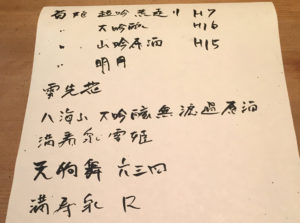 菊姫 超吟 H7
〃 大吟醸 H16
〃 山吟原酒 H15
〃 明月
八海山 大吟醸無濾過原酒
満寿泉 雪姫
天狗舞 六三四
満寿泉 R